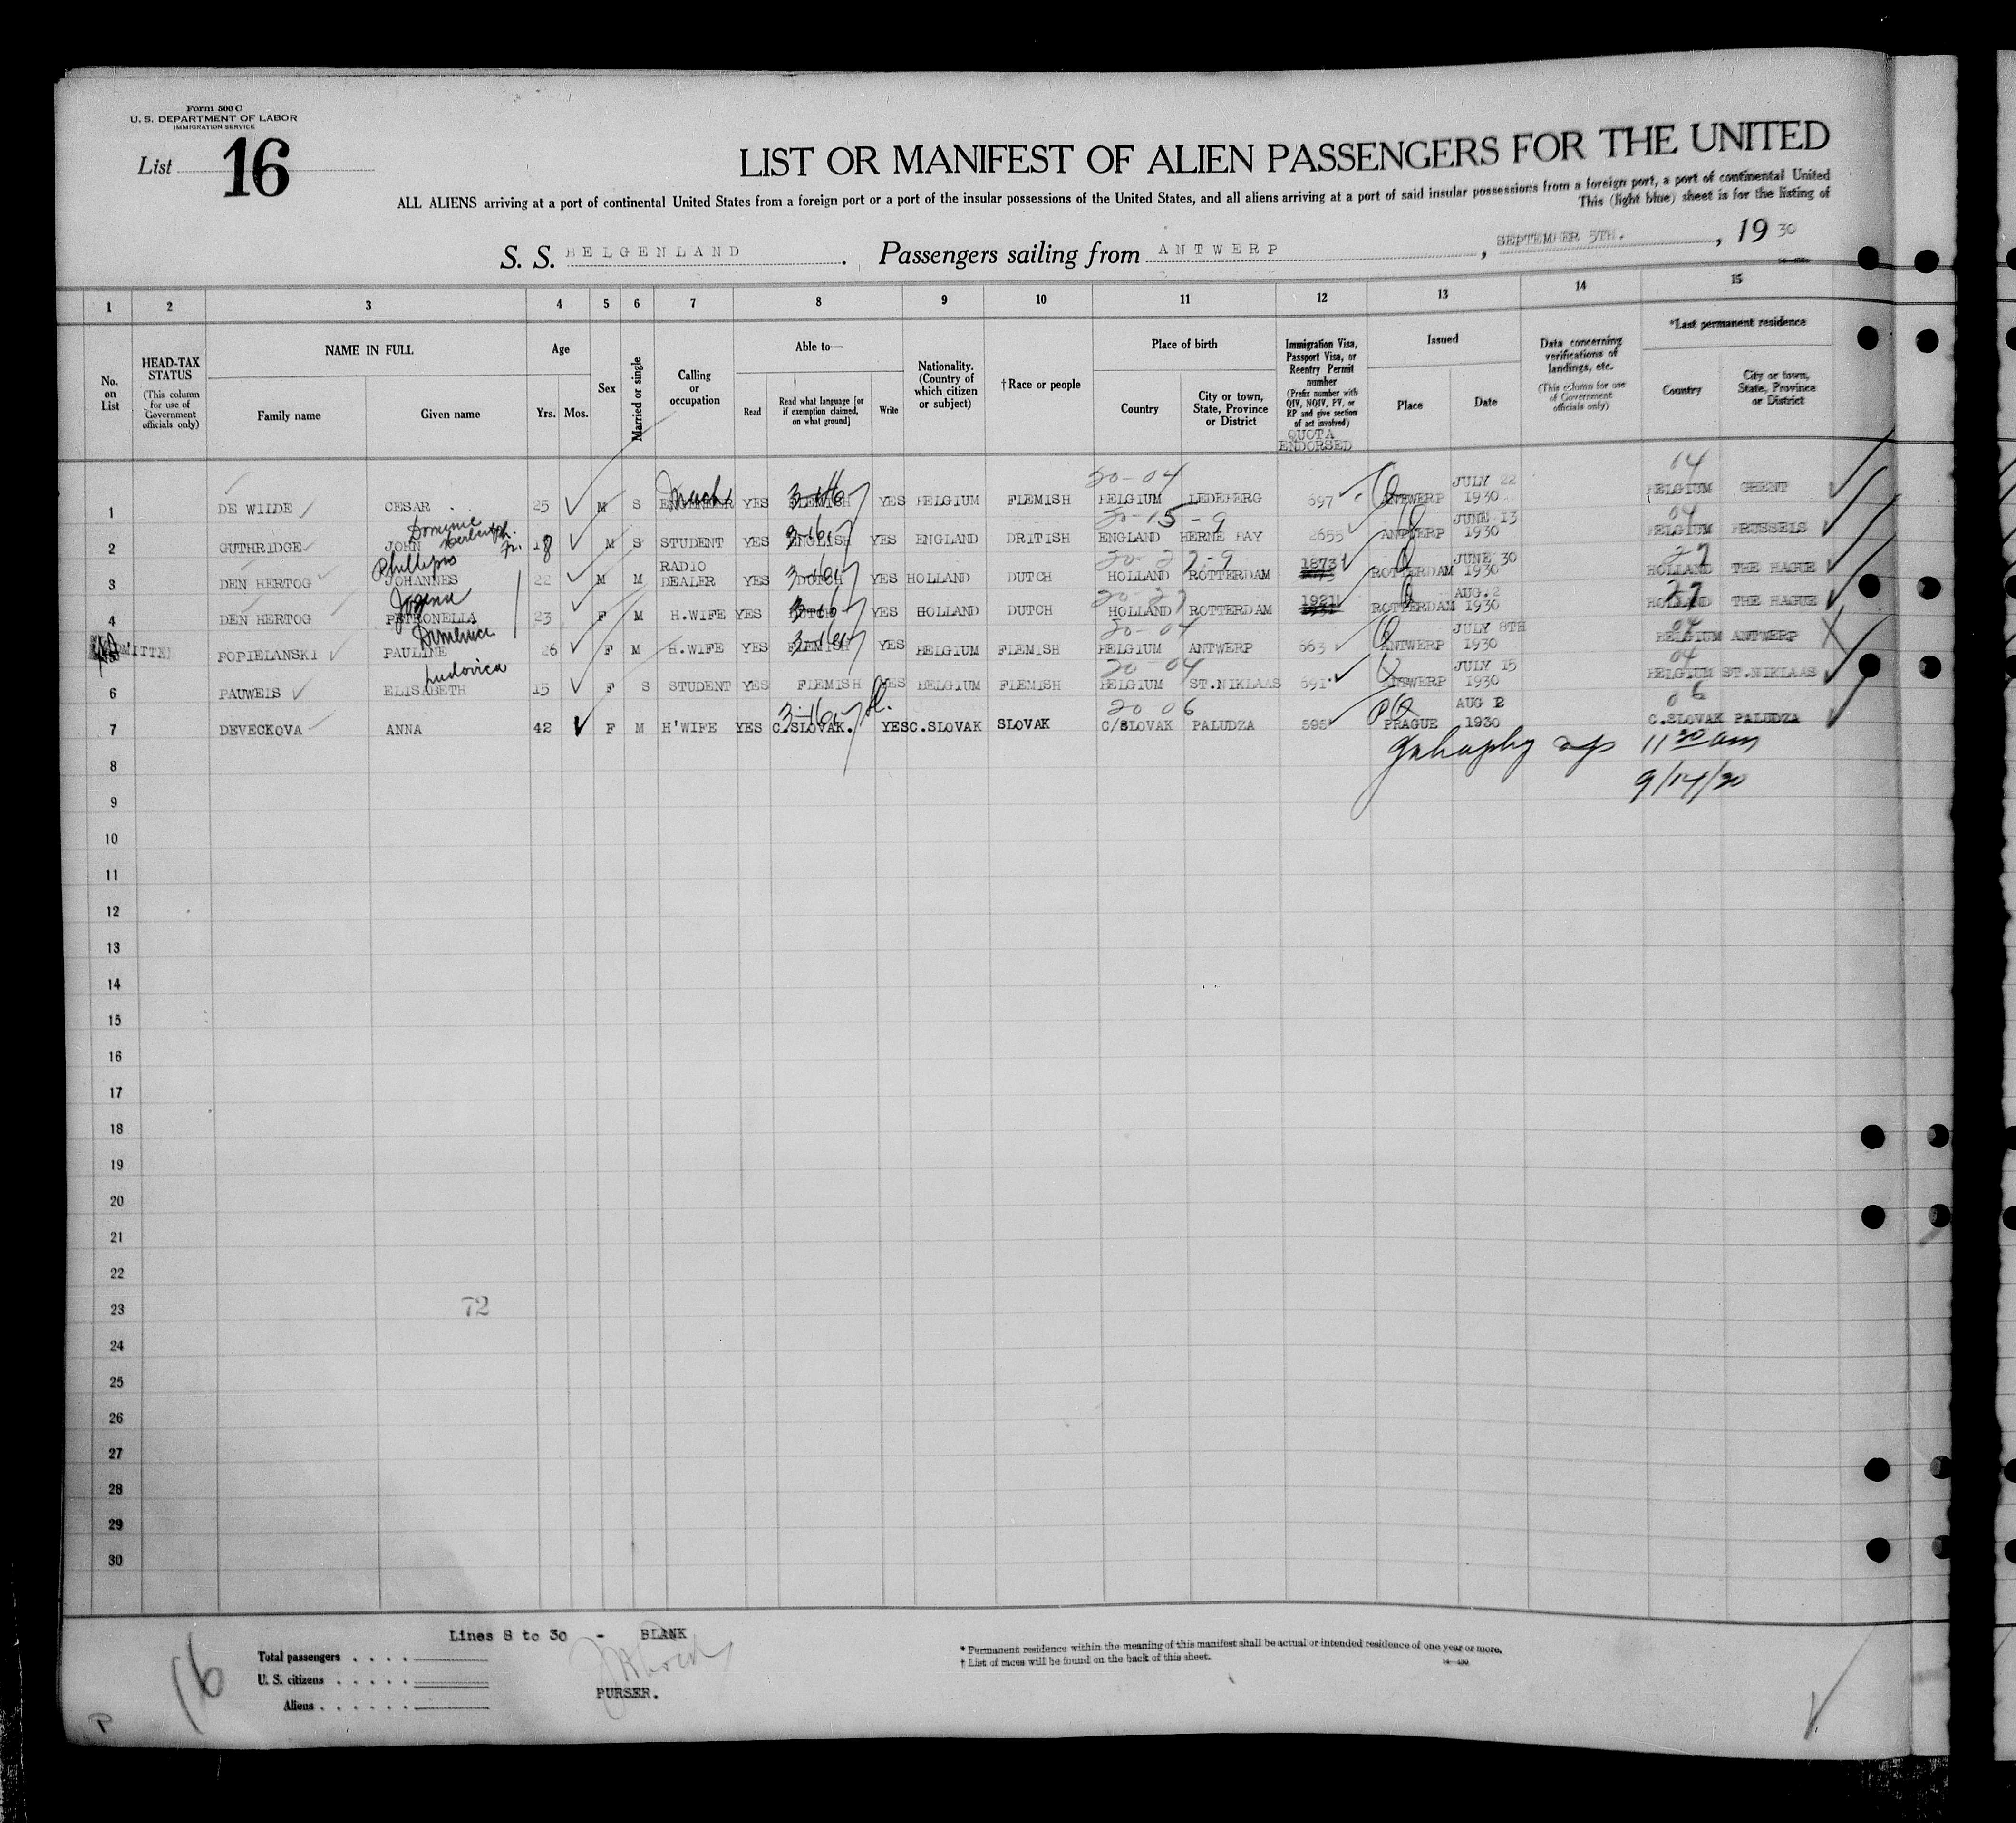 Form 500 C
U. S. DEPARTMENT OF LABOR
IMMIGRATION SERVICE
List 16
LIST OR MANIFEST OF ALIEN PASSENGERS FOR THE UNITED
ALL ALIENS arriving at a port of continental United States from a foreign port or a port of the insular possessions of the United States, and all aliens arriving at a port of said insular possessions from a foreign port, a port of continental United
This (light blue) sheet is for the listing of
S. S. BELGENLAND. Passengers sailing from ANTWERP, SEPTEMBER 5TH., 1930
1 2 3 4 5 6 7 8 9 10 11 12 13 14 15
No. on List
HEAD-TAX STATUS (This column for use of Government officials only)
NAME IN FULL
Family name
Given name
Age
Yrs. Mos.
Sex
Married or single
Calling or occupation
Able to—
Read
Read what language [or if exemption claimed, on what ground]
Write
Nationality. (Country of which citizen or subject)
† Race or people
Place of birth
Country
City or town, State, Province or District
Immigration Visa, Passport Visa, or Reentry Permit number (Prefix number with QIV, NQIV, PV, or RP and give section of act involved)
QUOTA ENDORSED
Issued
Place
Date
Data concerning verifications of landings, etc. (This column for use of Government officials only)
*Last permanent residence
Country
City or town, State, Province or District
20-04 JULY 22 04
1 DE WILDE CESAR 25 M S ENGINEER YES FLEMISH YES BELGIUM FLEMISH BELGIUM LEDEBERG 697 ANTWERP 1930 BELGIUM GHENT
Dominic Herbert Jr. 20-15-9 JUNE 13 04
2 GUTHRIDGE JOHN 18 M S STUDENT YES ENGLISH YES ENGLAND BRITISH ENGLAND HERNE BAY 2655 ANTWERP 1930 BELGIUM BRUSSELS
Phillipus RADIO 20-27-9 1873 JUNE 30 27
3 DEN HERTOG JOHANNES 22 M M DEALER YES DUTCH YES HOLLAND DUTCH HOLLAND ROTTERDAM ROTTERDAM 1930 HOLLAND THE HAGUE
Jozina 20-27 1921 AUG. 2 27
4 DEN HERTOG PETRONELLA 23 F M H.WIFE YES DUTCH YES HOLLAND DUTCH HOLLAND ROTTERDAM ROTTERDAM 1930 HOLLAND THE HAGUE
20-04 JULY 8TH 04
ADMITTED POPIELANSKI PAULINE 26 F M H.WIFE YES FLEMISH YES BELGIUM FLEMISH BELGIUM ANTWERP 663 ANTWERP 1930 BELGIUM ANTWERP
Ludovica 20 04 JULY 15 04
6 PAUWELS ELISABETH 15 F S STUDENT YES FLEMISH YES BELGIUM FLEMISH BELGIUM ST.NIKLAAS 691 ANTWERP 1930 BELGIUM ST.NIKLAAS
20 06 AUG 2 06
7 DEVECKOVA ANNA 42 F M H'WIFE YES C.SLOVAK. YES C.SLOVAK SLOVAK C/SLOVAK PALUDZA 595 PRAGUE 1930 C.SLOVAK PALUDZA
11 30 am
8
9/14/30
9
10
11
12
13
14
15
16
17
18
19
20
21
22
23 72
24
25
26
27
28
29
30
Lines 8 to 30 - BLANK
Total passengers . . . .
U. S. citizens . . . . .
Aliens . . . . . .
PURSER.
* Permanent residence within the meaning of this manifest shall be actual or intended residence of one year or more.
† List of races will be found on the back of this sheet.
16
P